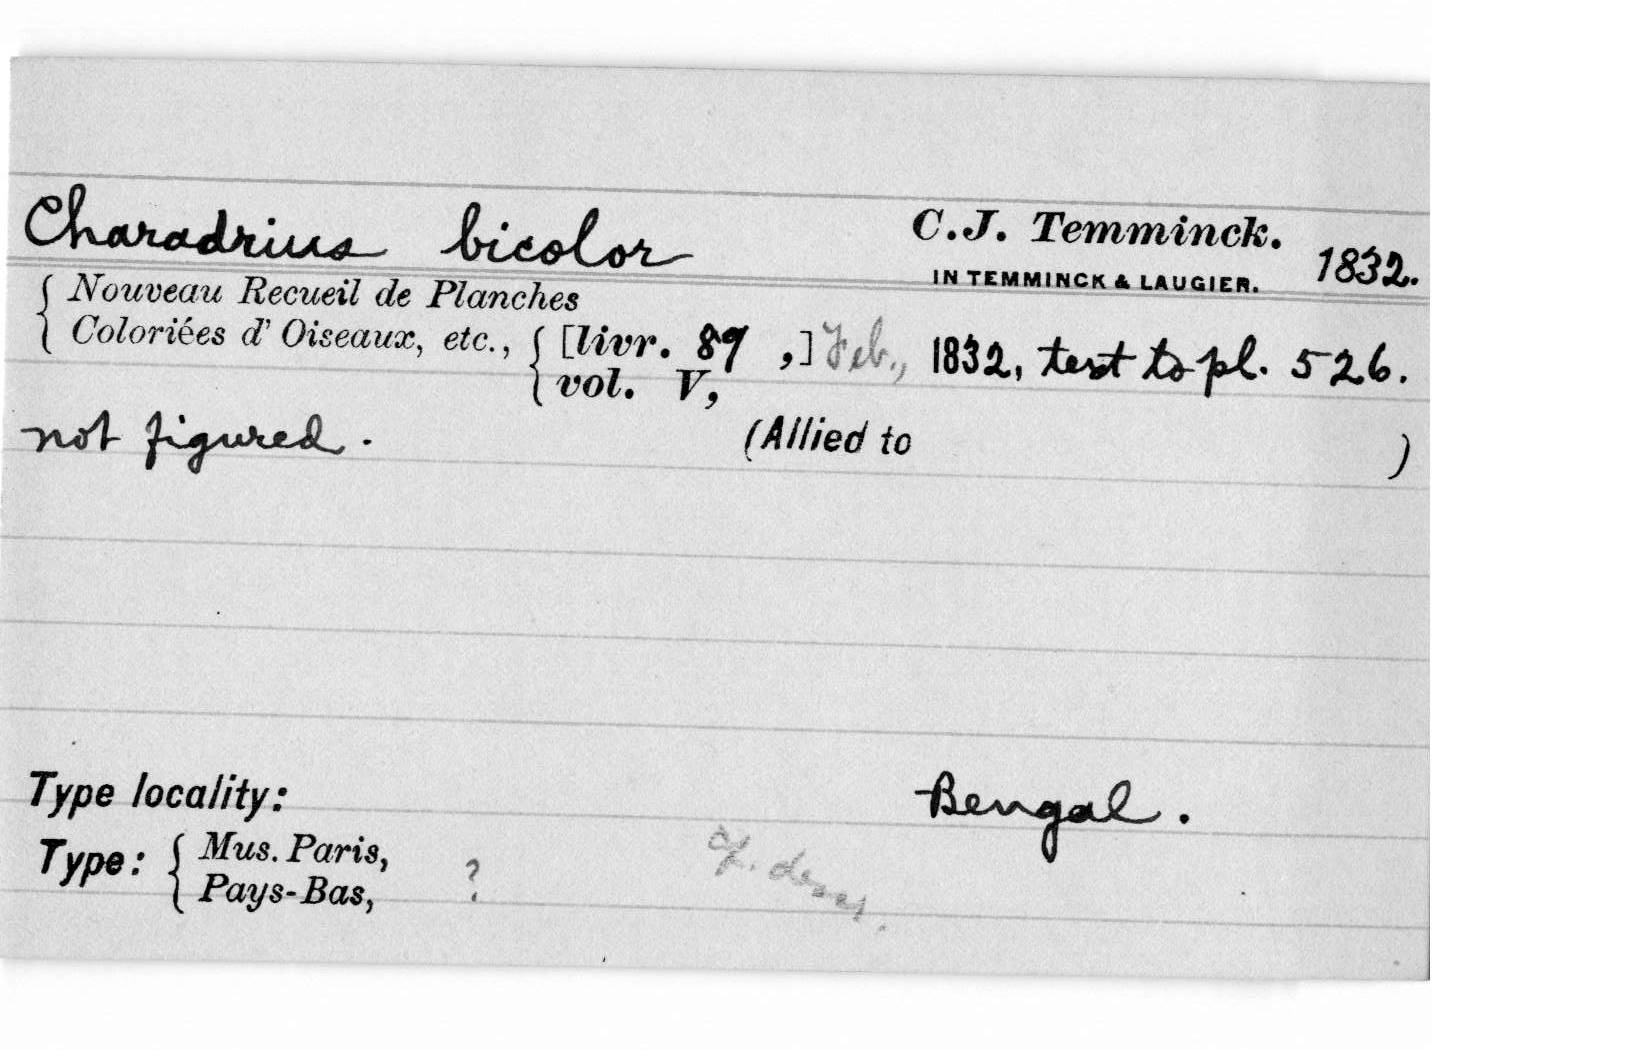 Charadrius bicolor C.J. Temminck.
IN TEMMINCK & LAUGIER. 1832.
{ Nouveau Recueil de Planches
Coloriées d' Oiseaux, etc., { [livr. 89 ,] Feb., 1832, text to pl. 526.
vol. V,
not figured. (Allied to )
Type locality: Bengal.
Type: { Mus. Paris,
Pays-Bas, ?
cf.